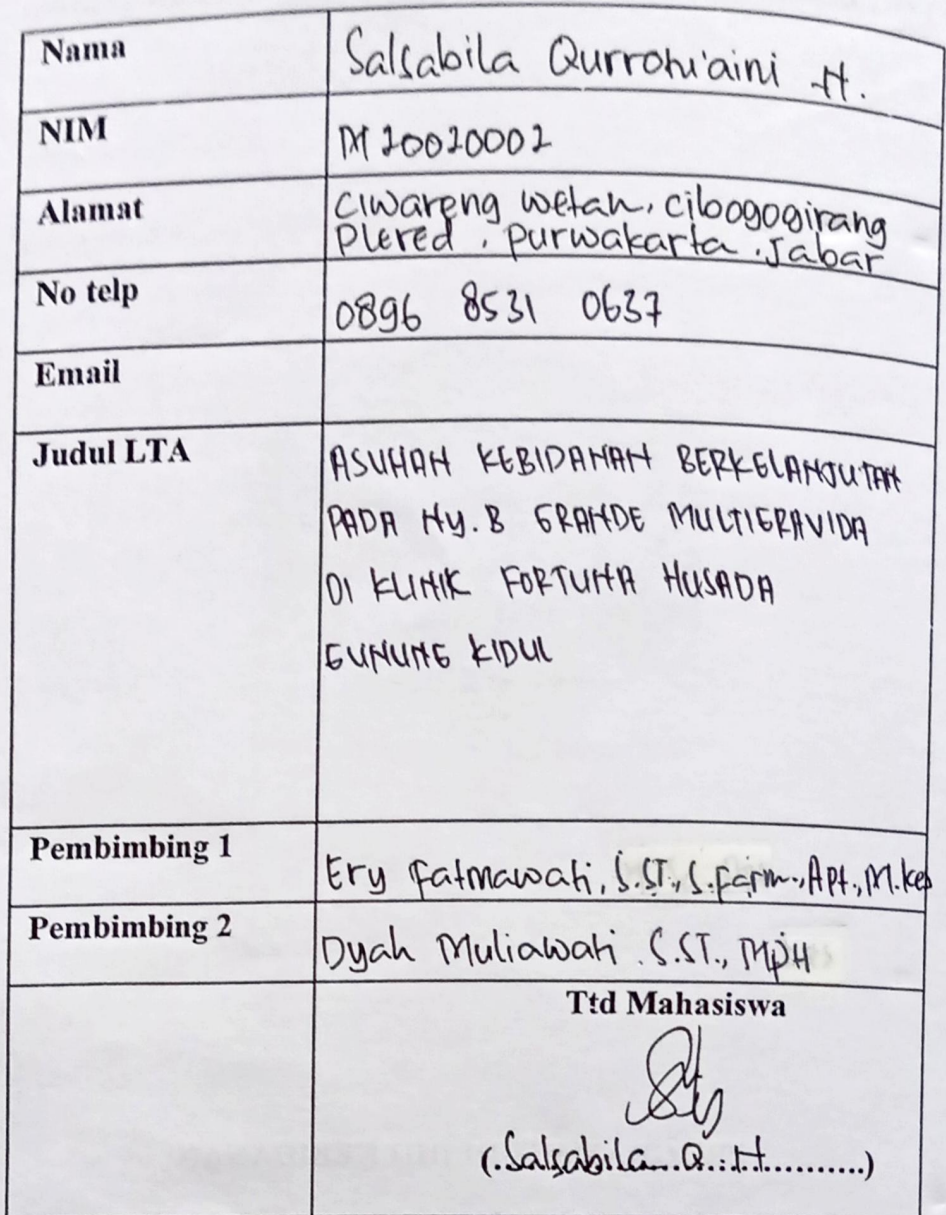 Nama Salsabila Qurrohi'aini H.
NIM M20020002
Alamat Ciwareng wetan, cibogogirang
Plered, Purwakarta, Jabar
No telp 0896 8531 0637
Email
Judul LTA ASUHAN KEBIDANAN BERKELANJUTAN
PADA NY. B GRANDE MULTIGRAVIDA
DI KLINIK FORTUNA HUSADA
GUNUNG KIDUL
Pembimbing 1 Ery Fatmawati, S.ST., S.Farm., Apt., M.Kes
Pembimbing 2 Dyah Muliawati. S.ST., MPH
Ttd Mahasiswa
(.Salsabila.Q.:.H..........)